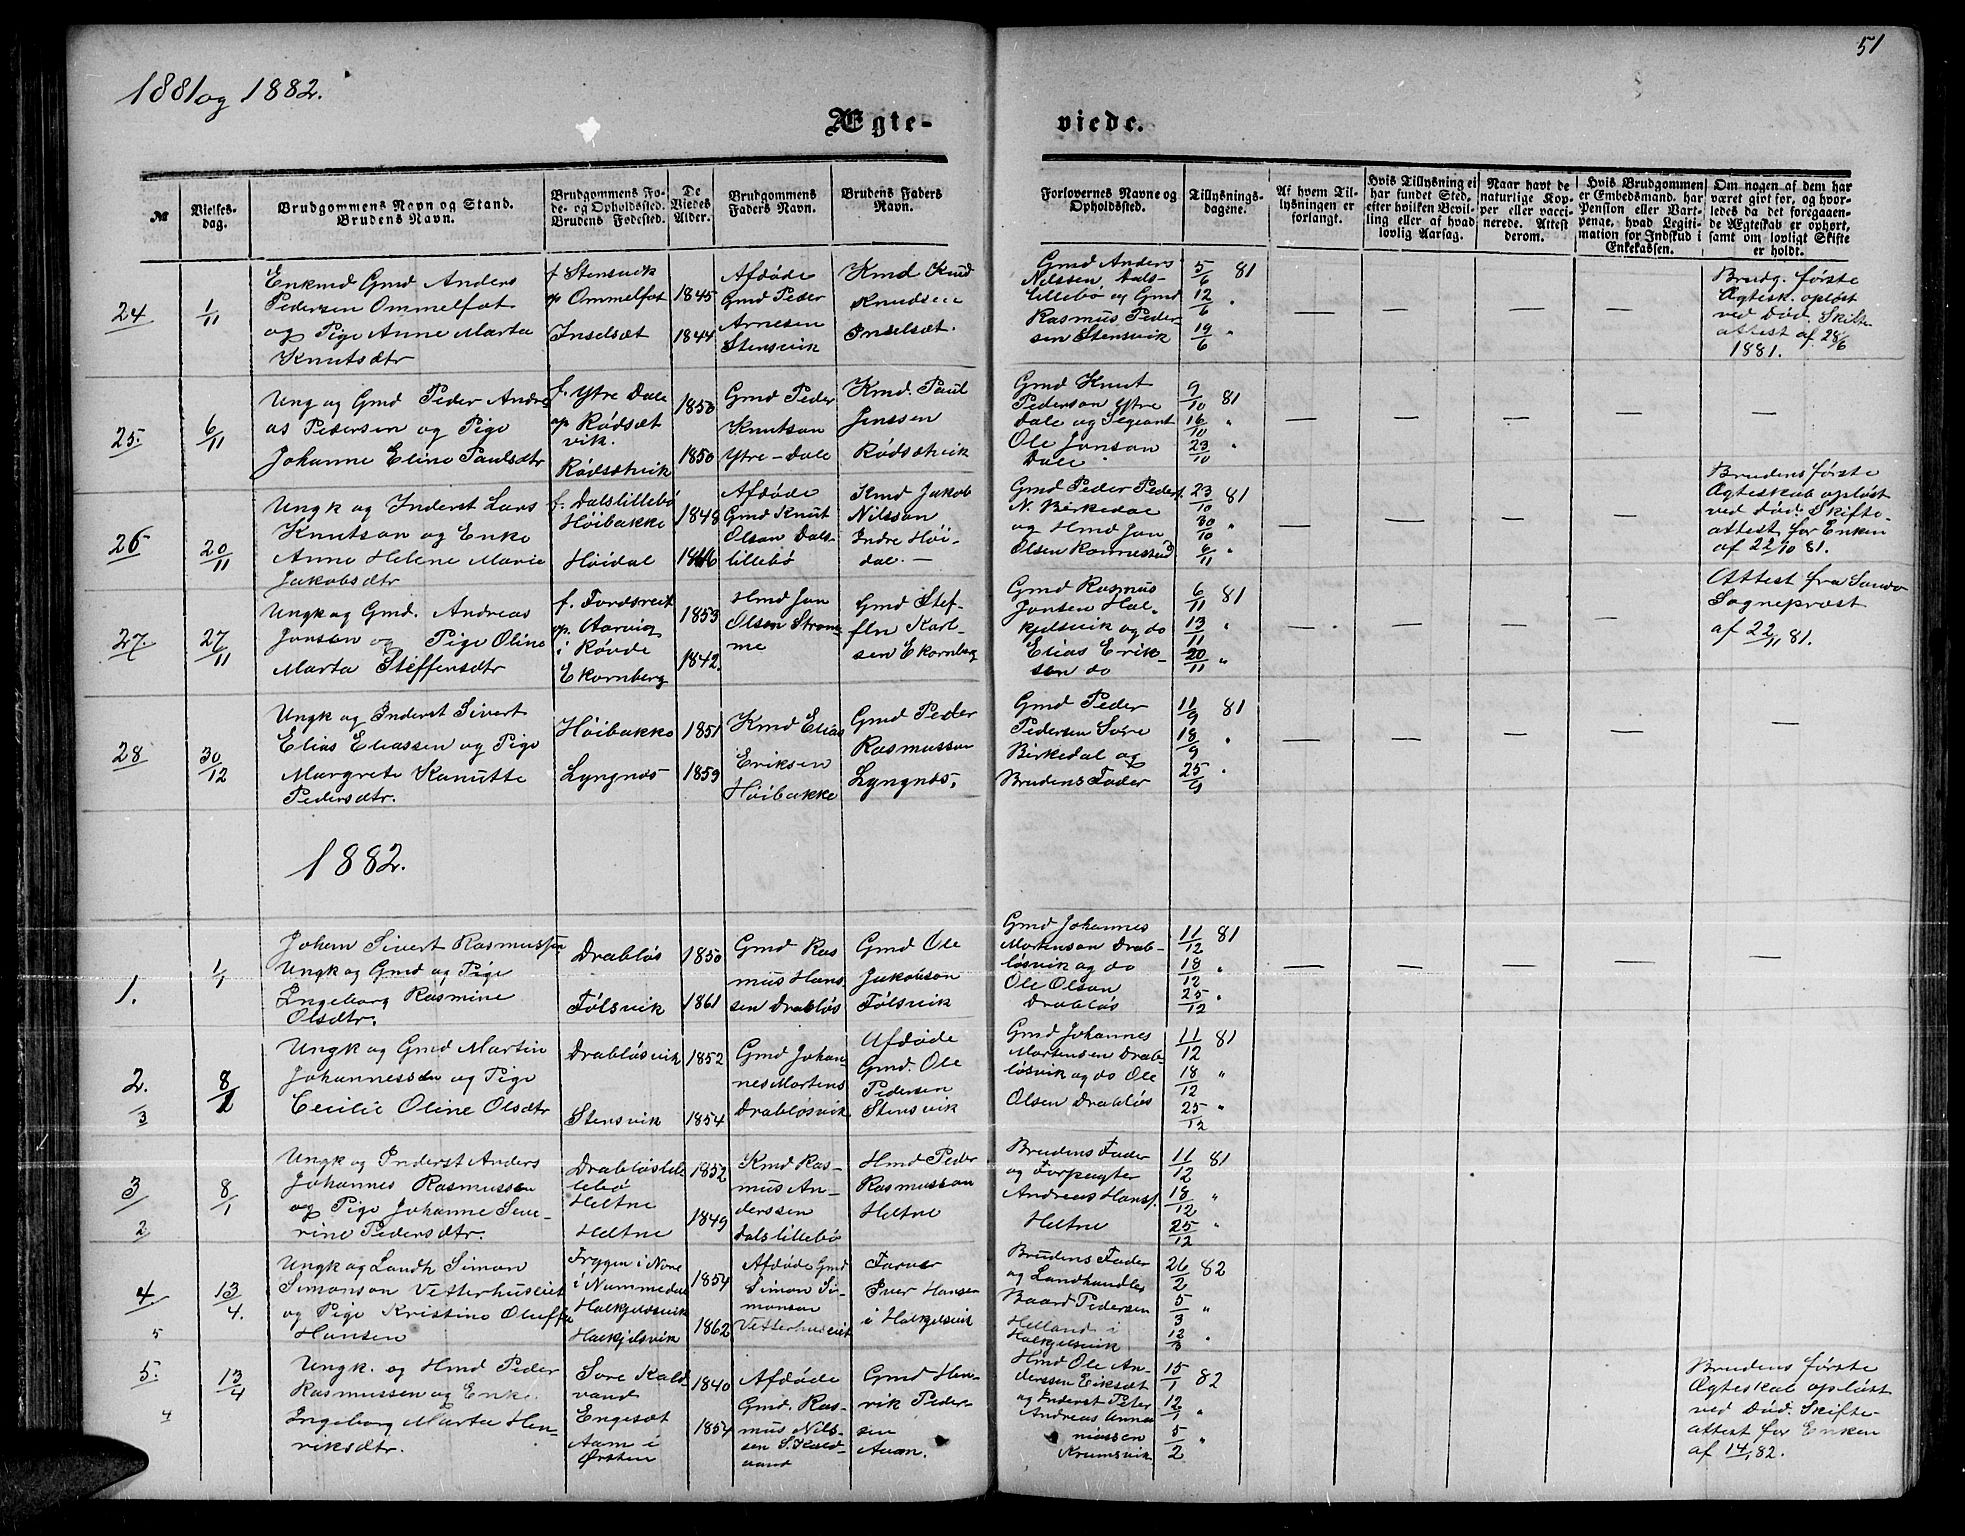 51
1881 og 1882.
Ægte-
viede.
№
Vielses-
dag.
Brudgommens Navn og Stand.
Brudens Navn.
Brudgommens Fø-
de- og Opholdssted.
Brudens Fødested.
De
Viedes
Alder.
Brudgommens
Faders Navn.
Brudens Faders
Navn.
Forlovernes Navne og
Opholdssted.
Tillysnings-
dagene.
Af hvem Til-
lysningen er
forlangt.
Hvis Tillysning ei
har fundet Sted,
efter hvilken Bevil-
ling eller af hvad
lovlig Aarsag.
Naar havt de
naturlige Kop-
per eller vacci-
nerede. Attest
derom.
Hvis Brudgommen
er Embedsmand, har
Pension eller Vart-
penge, hvad Legiti-
mation for Indskud i
Enkekassen.
Om nogen af dem har
været givt før, og hvor-
ledes da det foregaaen-
de Ægteskab er ophørt,
samt om lovligt Skifte
er holdt.
24
1/11
Enkmd Gmd Anders
Pedersen Ommelfot
og Pige Anne Marta
Knutsdtr
f Stensvik
op Ommelfot
Inselsæt
1845
1844
Afdøde
Gmd Peder
Arnesen
Stensvik
Kmd Knud
Knudsen
Inselsæt.
Gmd Anders
Nilssen Dals-
lillebø og Gmd
Rasmus Peder-
sen Stensvik
5/6 81
12/6 "
19/6 "
Brudg. første
Ægtesk. opløst
ved Død. Skifte
attest af 28/6
1881.
25.
6/11
Ung og Gmd Peder Andre
as Pedersen og Pige
Johanne Eline Paulsdtr
f. Ytre Dale
op Rødsæt
vik.
Rødsætvik
1850
1850
Gmd Peder
Knutson
Ytre-Dale
Kmd. Paul
Jenssen
Rødsætvik
Gmd Knut
Pederson Ytre
Dale og Segeant
Ole Jonson
Dale
9/10 81
16/10 "
23/10 "
26
20/11
Ungk og Inderst Lars
Knutson og Enke
Anne Helene Marie
Jakobsdtr
f. Dalslillebø
Høibakke
Høidal
1848
1846
Afdøde
Gmd Knut
Olson Dals-
lillebø
Kmd Jakob
Nilsson
Indre Høi-
dal.
Gmd Peder Peders
N. Birkedal
og Hmd Jon
Olsen Ronnestad
23/10 81
30/10 "
6/11 "
Brudens første
Ægteskab opløst
ved Død. Skifte-
attest for Enken
af 22/10 81.
27.
27/11
Ungk og Gmd. Andreas
Jonsen og Pige Oline
Marta Steffensdtr
f. Fordsreit
op. Aarvig
i Røvde
Ekornberg
1853
1842.
Hmd Jon
Olson Strøm-
me
Gmd Stef-
fen Karl-
sen Ekornberg
Gmd Rasmus
Jonsen Hal-
kjelsvik og do
Elias Erik-
sen do
6/11 81
13/11 "
20/11 "
Attest fra Sande
Sognepræst
af 22/11 81.
28
30/12
Ungk og Inderst Sivert
Elias Eliassen og Pige
Margrete Kanutte
Pedersdtr.
Høibakke
Lyngnæs
1851
1859
Kmd Elias
Eriksen
Høibakke
Gmd Peder
Rasmusson
Lyngnæs.
Gmd Peder
Pedersen Søre
Birkedal og
Brudens Fader
11/9 81
18/9 "
25/9 "
1882.
1.
1/1
Johan Sivert Rasmussen
Ungk og Gmd og Pige
Ingeborg Rasmine
Olsdtr.
Drabløs
Følsvik
1850
1861
Gmd Ras
mus Hans
sen Drabløs
Gmd Ole
Jakobson
Følsvik
Gmd Johannes
Mortenson Drab-
løsvik og do
Ole Olson
Drabløs
11/12 81
18/12 "
25/12 "
2.
3
8/1
Ungk og Gmd Martin
Johannessen og Pige
Cecilie Oline Olsdtr
Drabløsvik
Stensvik
1852
1854
Gmd Johan-
nes Mortens
Drabløsvik
Afdøde
Gmd. Ole
Pedersen
Stensvik
Gmd Johannes
Mortensen Drab-
løsvik og do Ole
Olsen Drabløs
11/12 81
18/12 "
25/12 "
3
2
8/1
Ungk og Inderst Anders
Johannes Rasmussen
og Pige Johanne Seve-
rine Pedersdtr.
Drabløslil
lebø
Heltne
Heltne
1852
1849
Kmd Ras-
mus An-
derssen
Dalslillebø
Hmd Peder
Rasmusson
Heltne
Brudens Fader
og Forpagter
Andreas Hans.
Heltne
11/12 81
18/12 "
25/12 "
4.
5
13/4.
Ungk og Landh Simon
Simonson Vetterhusviet
og Pige Kristine Oluffa
Hansen
i Nummedal
Halkjelsvik
Halkjelsvik
1854
1862
Afdøde Gmd
Simon Si-
monson
Farver
Iver Hansen
i Halkjelsvik
Brudens Fader
og Landhandler
Baard Pedersen
Helland i
Halkjelsvik
26/2 82
5/3 "
12/3 "
5.
4
13/4
Ungk. og Hmd Peder
Rasmussen og Enke
Ingeborg Marta Hen-
riksdtr.
Søre Kald
vand
Engesæt
Aam i
Ørsten
1840
1854
Afdøde
Gmd. Ras-
mus Nils-
sen S. Kald-
vand
Gmd Hen-
rik Peder-
sen
Aam.
Hmd Ole An-
derssen Eiksæt
og Inderst Peter
Andreas Anna
niassen
Krumsvik
15/1 82
12/1 "
5/2 "
Brudens første
Ægteskab opløst
ved Død. Skifte-
attest for Enken
af 14/1 82.